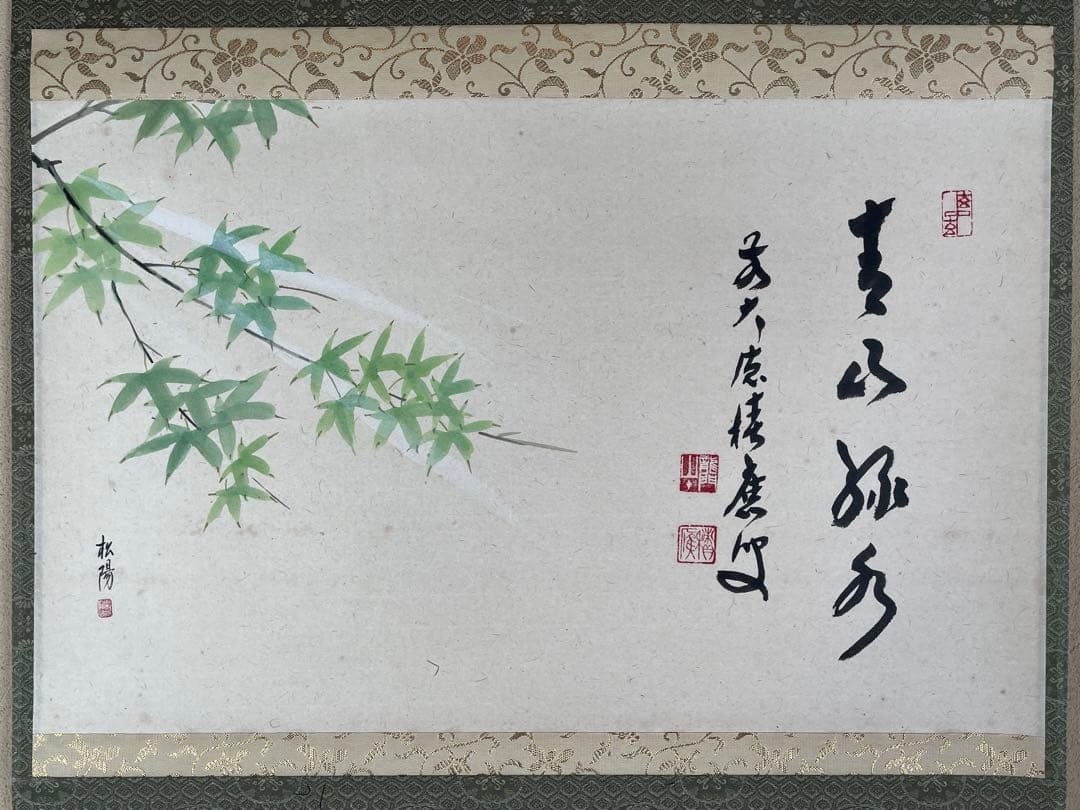 青山緑水
前大徳積應叟
松陽